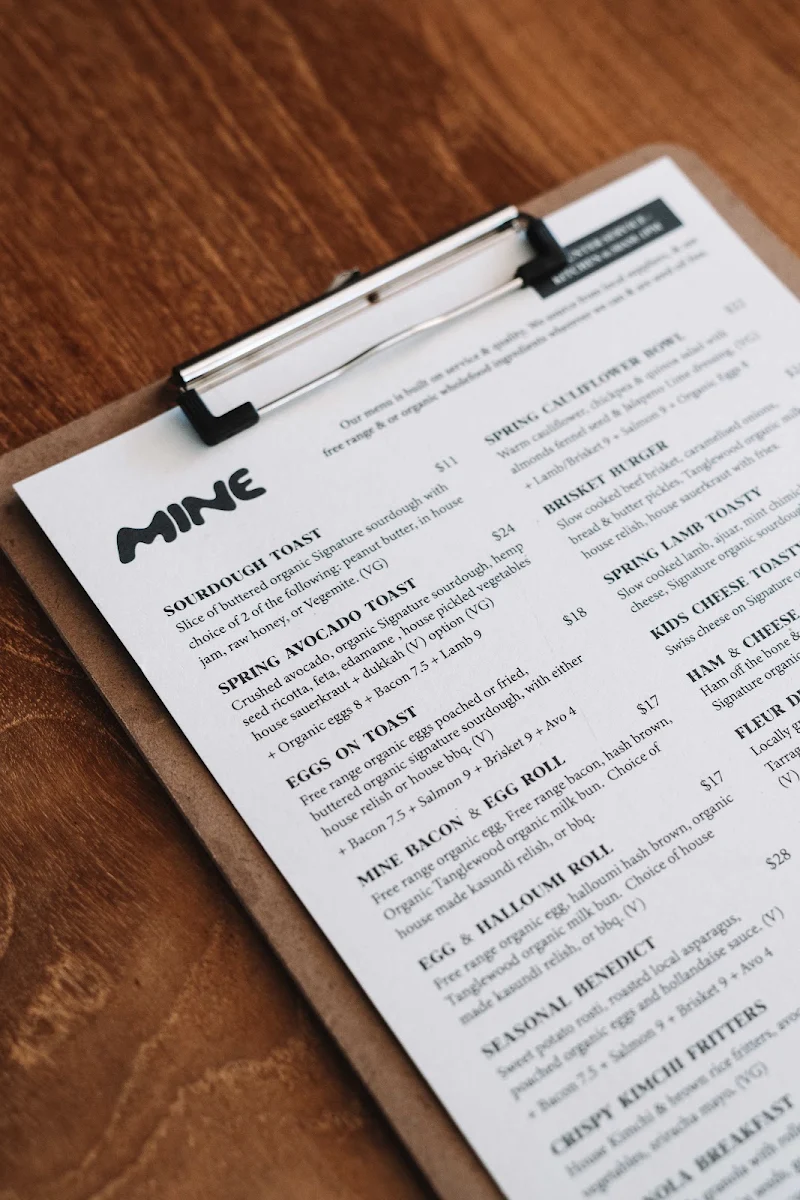 KITCHEN
Our menu is built on service & quality. We source from local suppliers, & use
free range & or organic wholefood ingredients wherever we can & are seed oil free.
MINE
SOURDOUGH TOAST $11
Slice of buttered organic Signature sourdough with
choice of 2 of the following: peanut butter, in house
jam, raw honey, or Vegemite. (VG)
SPRING AVOCADO TOAST $24
Crushed avocado, organic Signature sourdough, hemp
seed ricotta, feta, edamame ,house pickled vegetables
house sauerkraut + dukkah (V) option (VG)
+ Organic eggs 8 + Bacon 7.5 + Lamb 9
EGGS ON TOAST $18
Free range organic eggs poached or fried,
buttered organic signature sourdough, with either
house relish or house bbq. (V)
+ Bacon 7.5 + Salmon 9 + Brisket 9 + Avo 4
MINE BACON & EGG ROLL $17
Free range organic egg, Free range bacon, hash brown,
Organic Tanglewood organic milk bun. Choice of
house made kasundi relish, or bbq.
EGG & HALLOUMI ROLL $17
Free range organic egg, halloumi hash brown, organic
Tanglewood organic milk bun. Choice of house
made kasundi relish, or bbq. (V)
SEASONAL BENEDICT $28
Sweet potato rosti, roasted local asparagus,
poached organic eggs and hollandaise sauce. (V)
+ Bacon 7.5 + Salmon 9 + Brisket 9 + Avo 4
CRISPY KIMCHI FRITTERS
House Kimchi & brown rice fritters,
vegetables, sriracha mayo. (VG)
BREAKFAST
with
SPRING CAULIFLOWER BOWL
Warm cauliflower, chickpea & quinoa salad with
almonds fennel seed & Jalapeno Lime dressing. (VG)
+ Lamb/Brisket 9 + Salmon 9 + Organic Eggs 8
BRISKET BURGER
Slow cooked beef brisket, caramelised onions,
bread & butter pickles, Tanglewood organic
house relish, house sauerkraut with fries
SPRING LAMB TOASTY
Slow cooked lamb, ajuar, mint
cheese, Signature organic
KIDS CHEESE TOASTY
Swiss cheese on Signature
HAM & CHEESE
Ham off the bone &
Signature
FLEUR
Locally
(V)